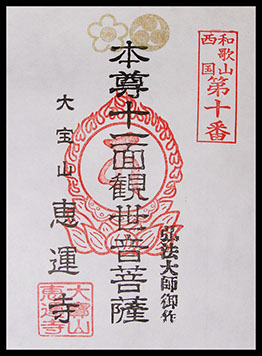 和歌山
西国
第十番
弘法大師御作
本尊十一面観世音菩薩
大宝山
恵運寺
大寳山
恵運寺